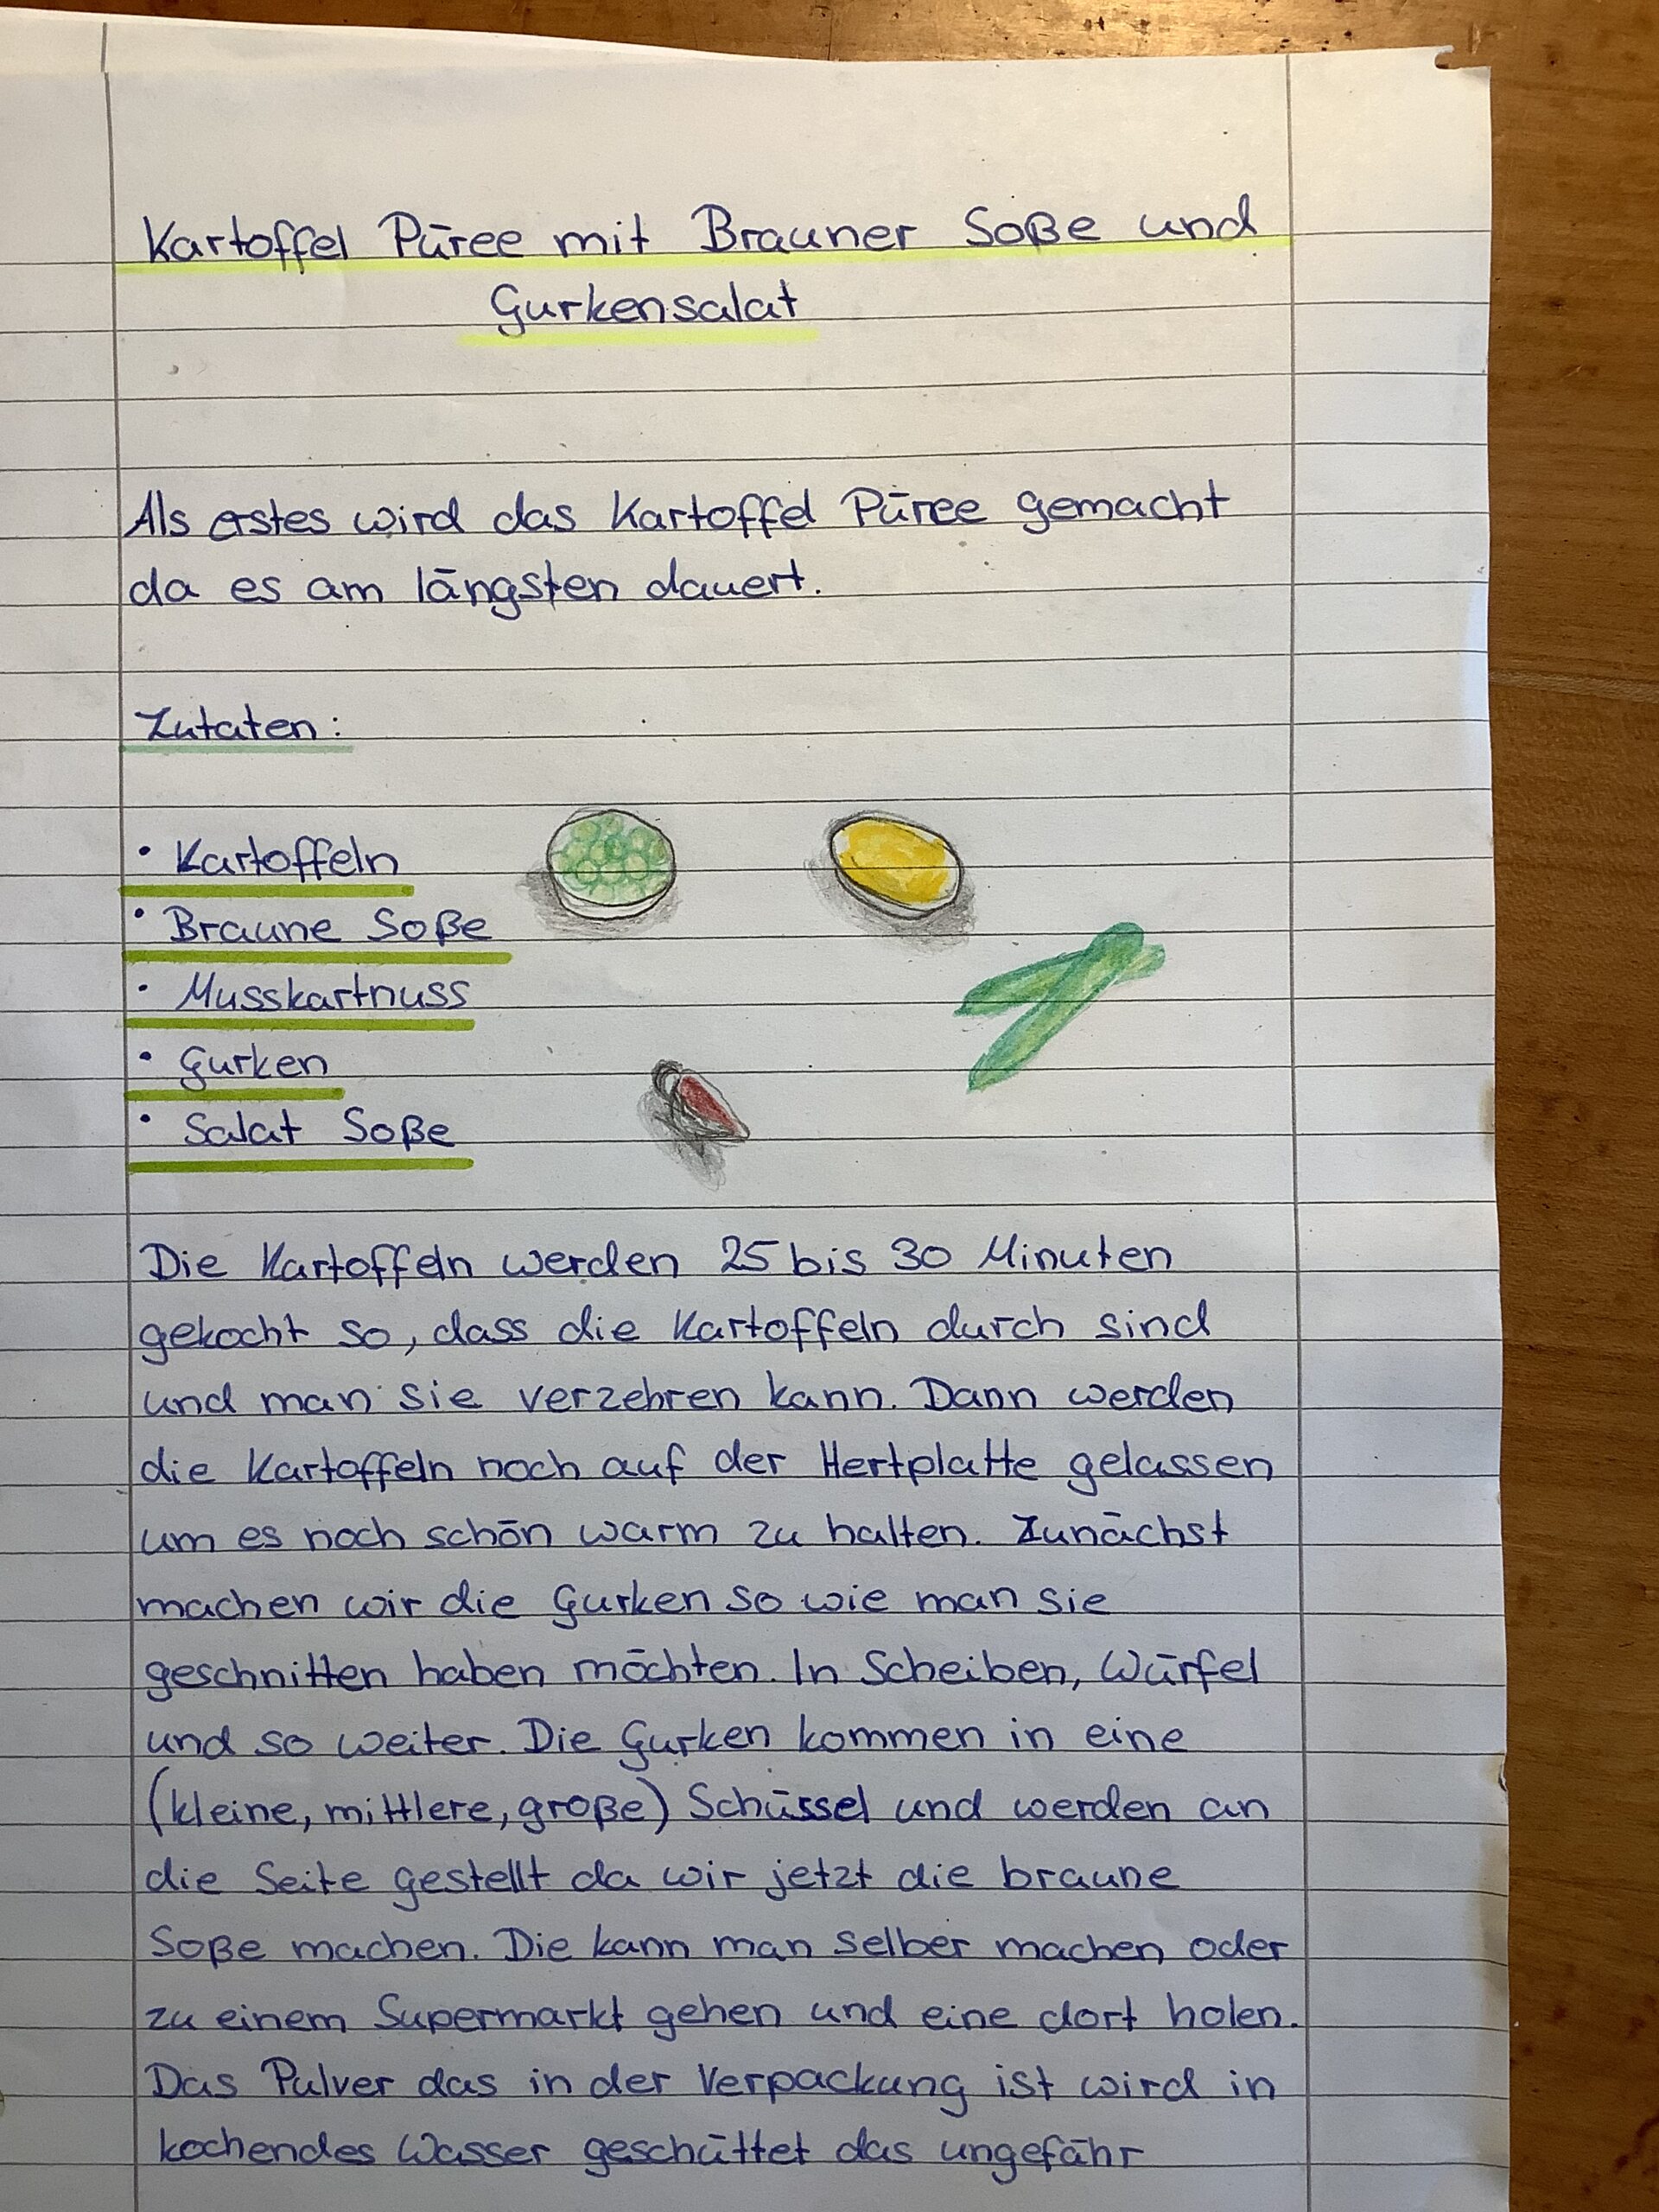 Kartoffel Püree mit Brauner Soße und
Gurkensalat
Als erstes wird das Kartoffel Püree gemacht
da es am längsten dauert.
Zutaten:
• Kartoffeln
• Braune Soße
• Musskartnuss
• Gurken
• Salat Soße
Die Kartoffeln werden 25 bis 30 Minuten
gekocht so, dass die Kartoffeln durch sind
und man sie verzehren kann. Dann werden
die Kartoffeln noch auf der Hertplatte gelassen
um es noch schön warm zu halten. Zunächst
machen wir die Gurken so wie man sie
geschnitten haben möchten. In Scheiben, Würfel
und so weiter. Die Gurken kommen in eine
(kleine, mittlere, große) Schüssel und werden an
die Seite gestellt da wir jetzt die braune
Soße machen. Die kann man selber machen oder
zu einem Supermarkt gehen und eine dort holen.
Das Pulver das in der Verpackung ist wird in
kochendes Wasser geschüttet das ungefähr